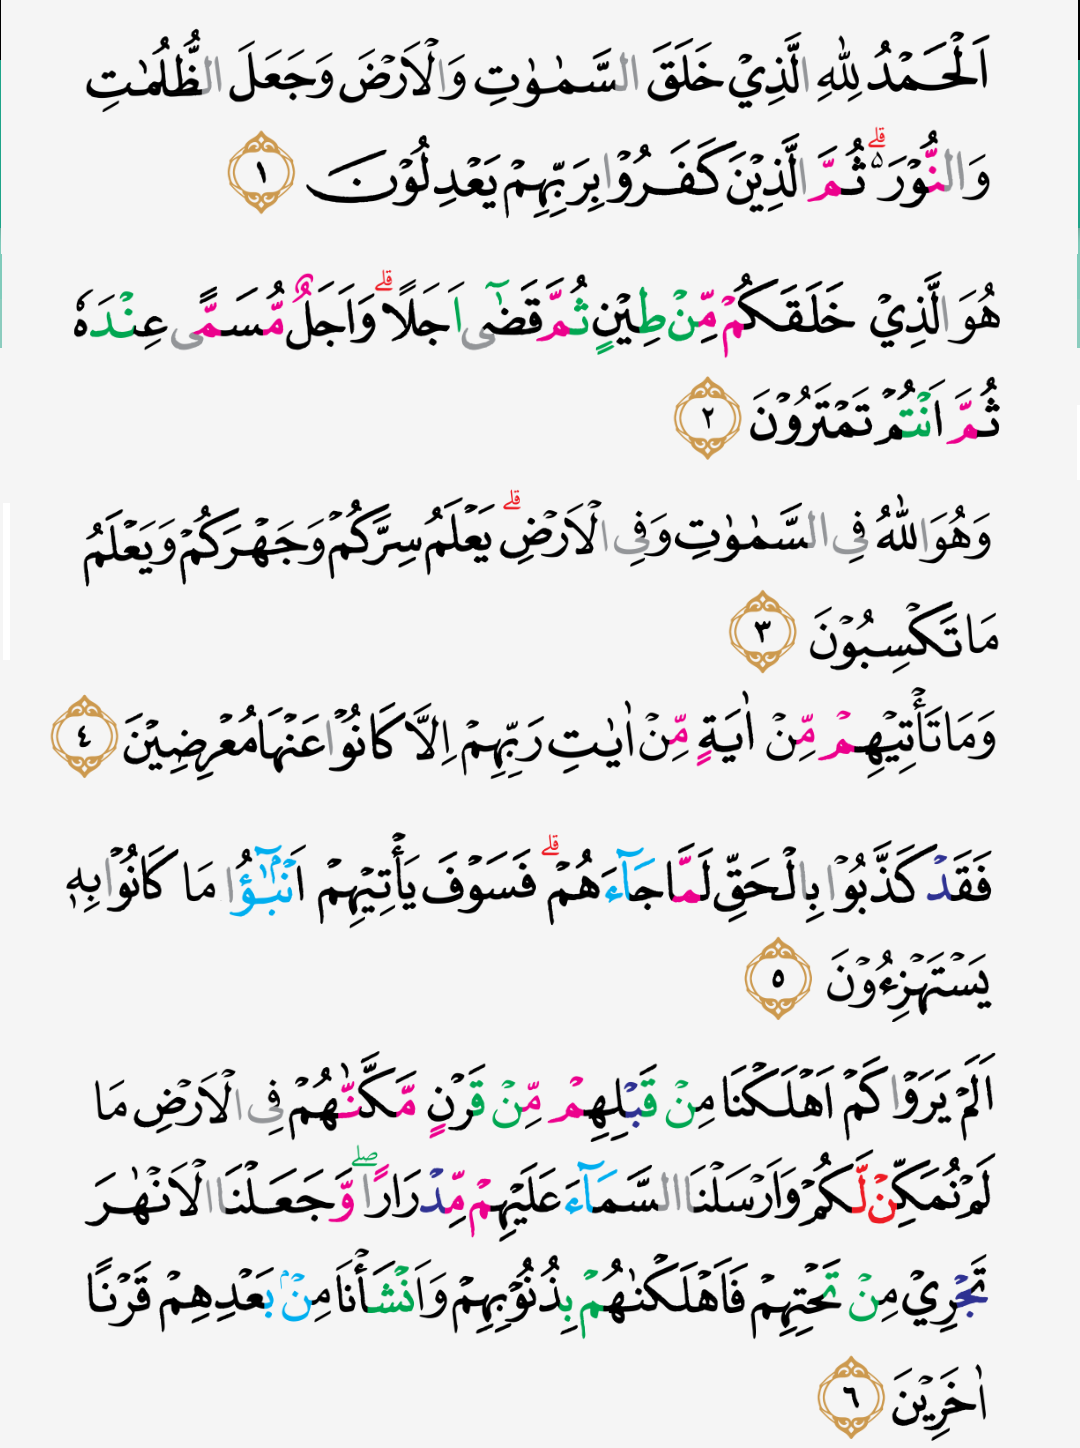 اَلْحَمْدُ لِلّٰهِ الَّذِيْ خَلَقَ السَّمٰوٰتِ وَالْاَرْضَ وَجَعَلَ الظُّلُمٰتِ
وَالنُّوْرَ ەۗ ثُمَّ الَّذِيْنَ كَفَرُوْا بِرَبِّهِمْ يَعْدِلُوْنَ ١
هُوَ الَّذِيْ خَلَقَكُمْ مِّنْ طِيْنٍ ثُمَّ قَضٰٓى اَجَلًا ۗوَاَجَلٌ مُّسَمًّى عِنْدَهٗ
ثُمَّ اَنْتُمْ تَمْتَرُوْنَ ٢
وَهُوَ اللّٰهُ فِى السَّمٰوٰتِ وَفِى الْاَرْضِۗ يَعْلَمُ سِرَّكُمْ وَجَهْرَكُمْ وَيَعْلَمُ
مَا تَكْسِبُوْنَ ٣
وَمَا تَأْتِيْهِمْ مِّنْ اٰيَةٍ مِّنْ اٰيٰتِ رَبِّهِمْ اِلَّا كَانُوْا عَنْهَا مُعْرِضِيْنَ ٤
فَقَدْ كَذَّبُوْا بِالْحَقِّ لَمَّا جَاۤءَهُمْۗ فَسَوْفَ يَأْتِيْهِمْ اَنْۢبٰۤؤُا مَا كَانُوْا بِهٖ
يَسْتَهْزِءُوْنَ ٥
اَلَمْ يَرَوْا كَمْ اَهْلَكْنَا مِنْ قَبْلِهِمْ مِّنْ قَرْنٍ مَّكَّنّٰهُمْ فِى الْاَرْضِ مَا
لَمْ نُمَكِّنْ لَّكُمْ وَاَرْسَلْنَا السَّمَاۤءَ عَلَيْهِمْ مِّدْرَارًا ۖوَّجَعَلْنَا الْاَنْهٰرَ
تَجْرِيْ مِنْ تَحْتِهِمْ فَاَهْلَكْنٰهُمْ بِذُنُوْبِهِمْ وَاَنْشَأْنَا مِنْۢ بَعْدِهِمْ قَرْنًا
اٰخَرِيْنَ ٦